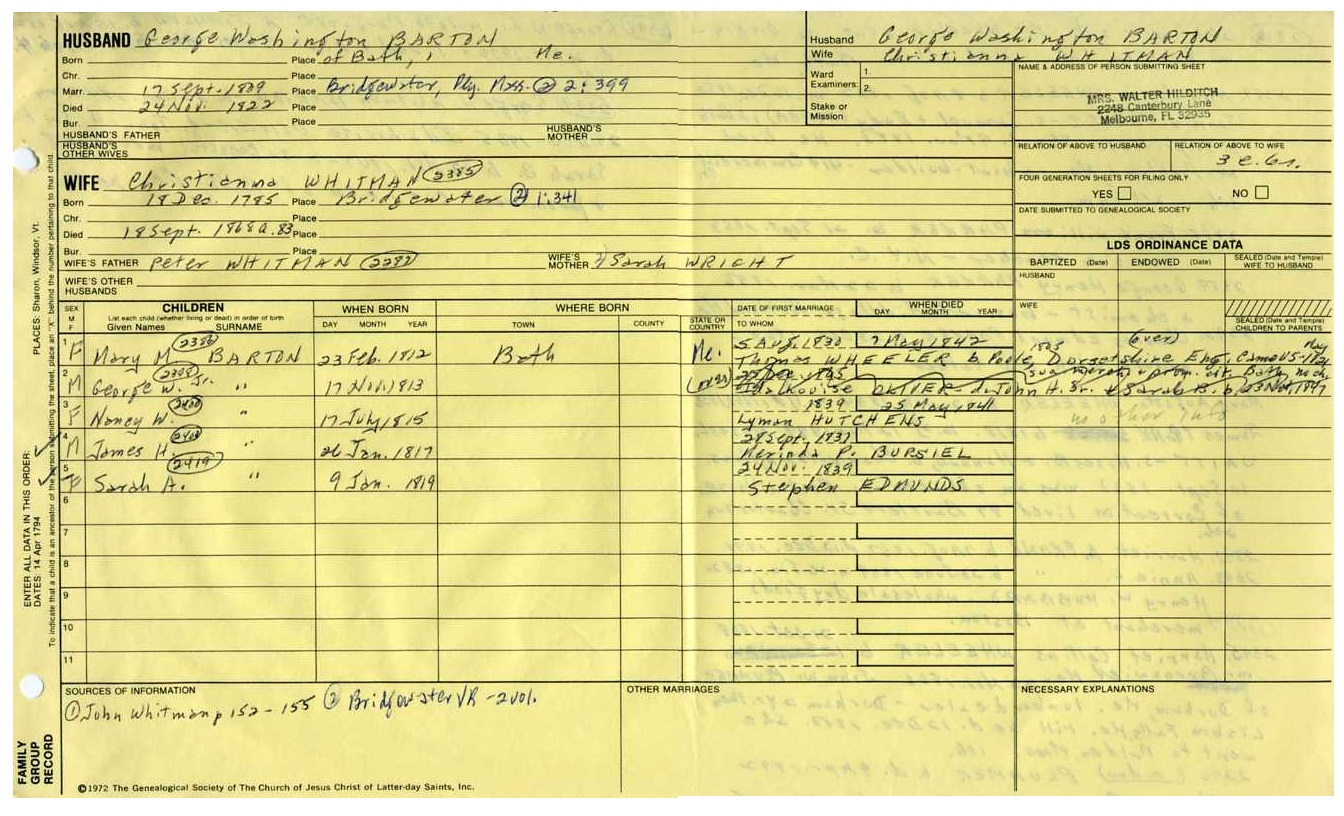 HUSBAND George Washington BARTON
Born Place of Bath, Me.
Chr. Place
Marr. 17 Sept. 1809 Place Bridgewater, Ply. Mass. ② 2:399
Died 24 Nov. 1822 Place
Bur. Place
HUSBAND'S FATHER HUSBAND'S MOTHER
HUSBAND'S OTHER WIVES
WIFE Christianna WHITMAN 2385
Born 18 Dec. 1785 Place Bridgewater ② 1:341
Chr. Place
Died 18 Sept. 1868 a. 83 Place
Bur. Place
WIFE'S FATHER Peter WHITMAN WIFE'S MOTHER Sarah WRIGHT
WIFE'S OTHER HUSBANDS
Husband George Washington BARTON
Wife Christianna WHITMAN
Ward Examiners: 1.
2.
Stake or Mission
NAME & ADDRESS OF PERSON SUBMITTING SHEET
MRS. WALTER HILDITCH
2248 Canterbury Lane
Melbourne, FL 32935
RELATION OF ABOVE TO HUSBAND RELATION OF ABOVE TO WIFE
3 c.
FOUR GENERATION SHEETS FOR FILING ONLY
YES NO
DATE SUBMITTED TO GENEALOGICAL SOCIETY
LDS ORDINANCE DATA
BAPTIZED (Date) ENDOWED (Date) SEALED (Date and Temple) WIFE TO HUSBAND
HUSBAND
WIFE
SEALED (Date and Temple) CHILDREN TO PARENTS
SEX M F
CHILDREN
List each child (whether living or dead) in order of birth
Given Names SURNAME
WHEN BORN
DAY MONTH YEAR
WHERE BORN
TOWN COUNTY STATE OR COUNTRY
DATE OF FIRST MARRIAGE
TO WHOM
WHEN DIED
DAY MONTH YEAR
1 F Mary M. 2386 BARTON 23 Feb. 1812 Bath Me. 5 Aug. 1830 7 May 1842
Thomas WHEELER b. Poole, Dorsetshire Eng. 1805 (over) came US
2 M George W. Jr. " 17 Nov. 1813
OLIVER d. John H. Sr. & Sarah B. b. 23 Nov. 1847
3 F Nancy W. 2400 " 17 July 1815 1839 25 May 1841
Lyman HUTCHENS no other info
4 M James H. " 26 Jan. 1817 28 Sept. 1837
P. BURSIEL
5 F Sarah A. 2419 " 9 Jan. 1819 24 Nov. 1839
Stephen EDMUNDS
6
7
8
9
10
11
SOURCES OF INFORMATION
① John Whitman p 152-155 ② Bridgewater VR - 2 vol.
OTHER MARRIAGES
NECESSARY EXPLANATIONS
©1972 The Genealogical Society of The Church of Jesus Christ of Latter-day Saints, Inc.
FAMILY GROUP RECORD
ENTER ALL DATA IN THIS ORDER:
DATES: 14 Apr 1794
PLACES: Sharon, Windsor, Vt.
To indicate that a child is an ancestor of the person submitting the sheet, place an "X" behind the number pertaining to that child.